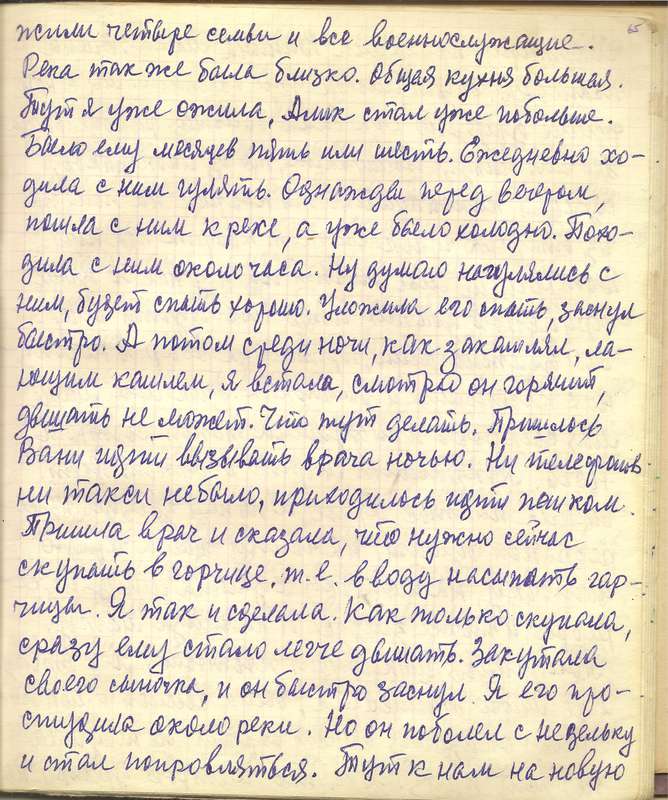 65
жили четыре семьи и все военнослужащие.
Река так же была близко. Общая кухня большая.
Тут я уже ожила, Алик стал уже побольше.
Было ему месяцев пять или шесть. Ежедневно хо-
дила с ним гулять. Однажды перед вечером,
пошла с ним к реке, а уже было холодно. Похо-
дила с ним около часа. Ну думаю нагулялись с
ним, будет спать хорошо. Уложила его спать, заснул
быстро. А потом среди ночи, как закашлял, ла-
ющим кашлем, я встала, смотрю он горячий,
дышать не может. Что тут делать. Пришлось
Вани идти вызывать врача ночью. Ни телефонов
ни такси небыло, приходилось идти пешком.
Пришла врач и сказала, что нужно сейчас
скупать в горчице, т.е. в воду насыпать гар-
чицы. Я так и сделала. Как только скупала,
сразу ему стало легче дышать. Закутала
своего сыночка, и он быстро заснул. Я его про-
студила около реки. Но он поболел с недельку
и стал попровляться. Тут к нам на новую